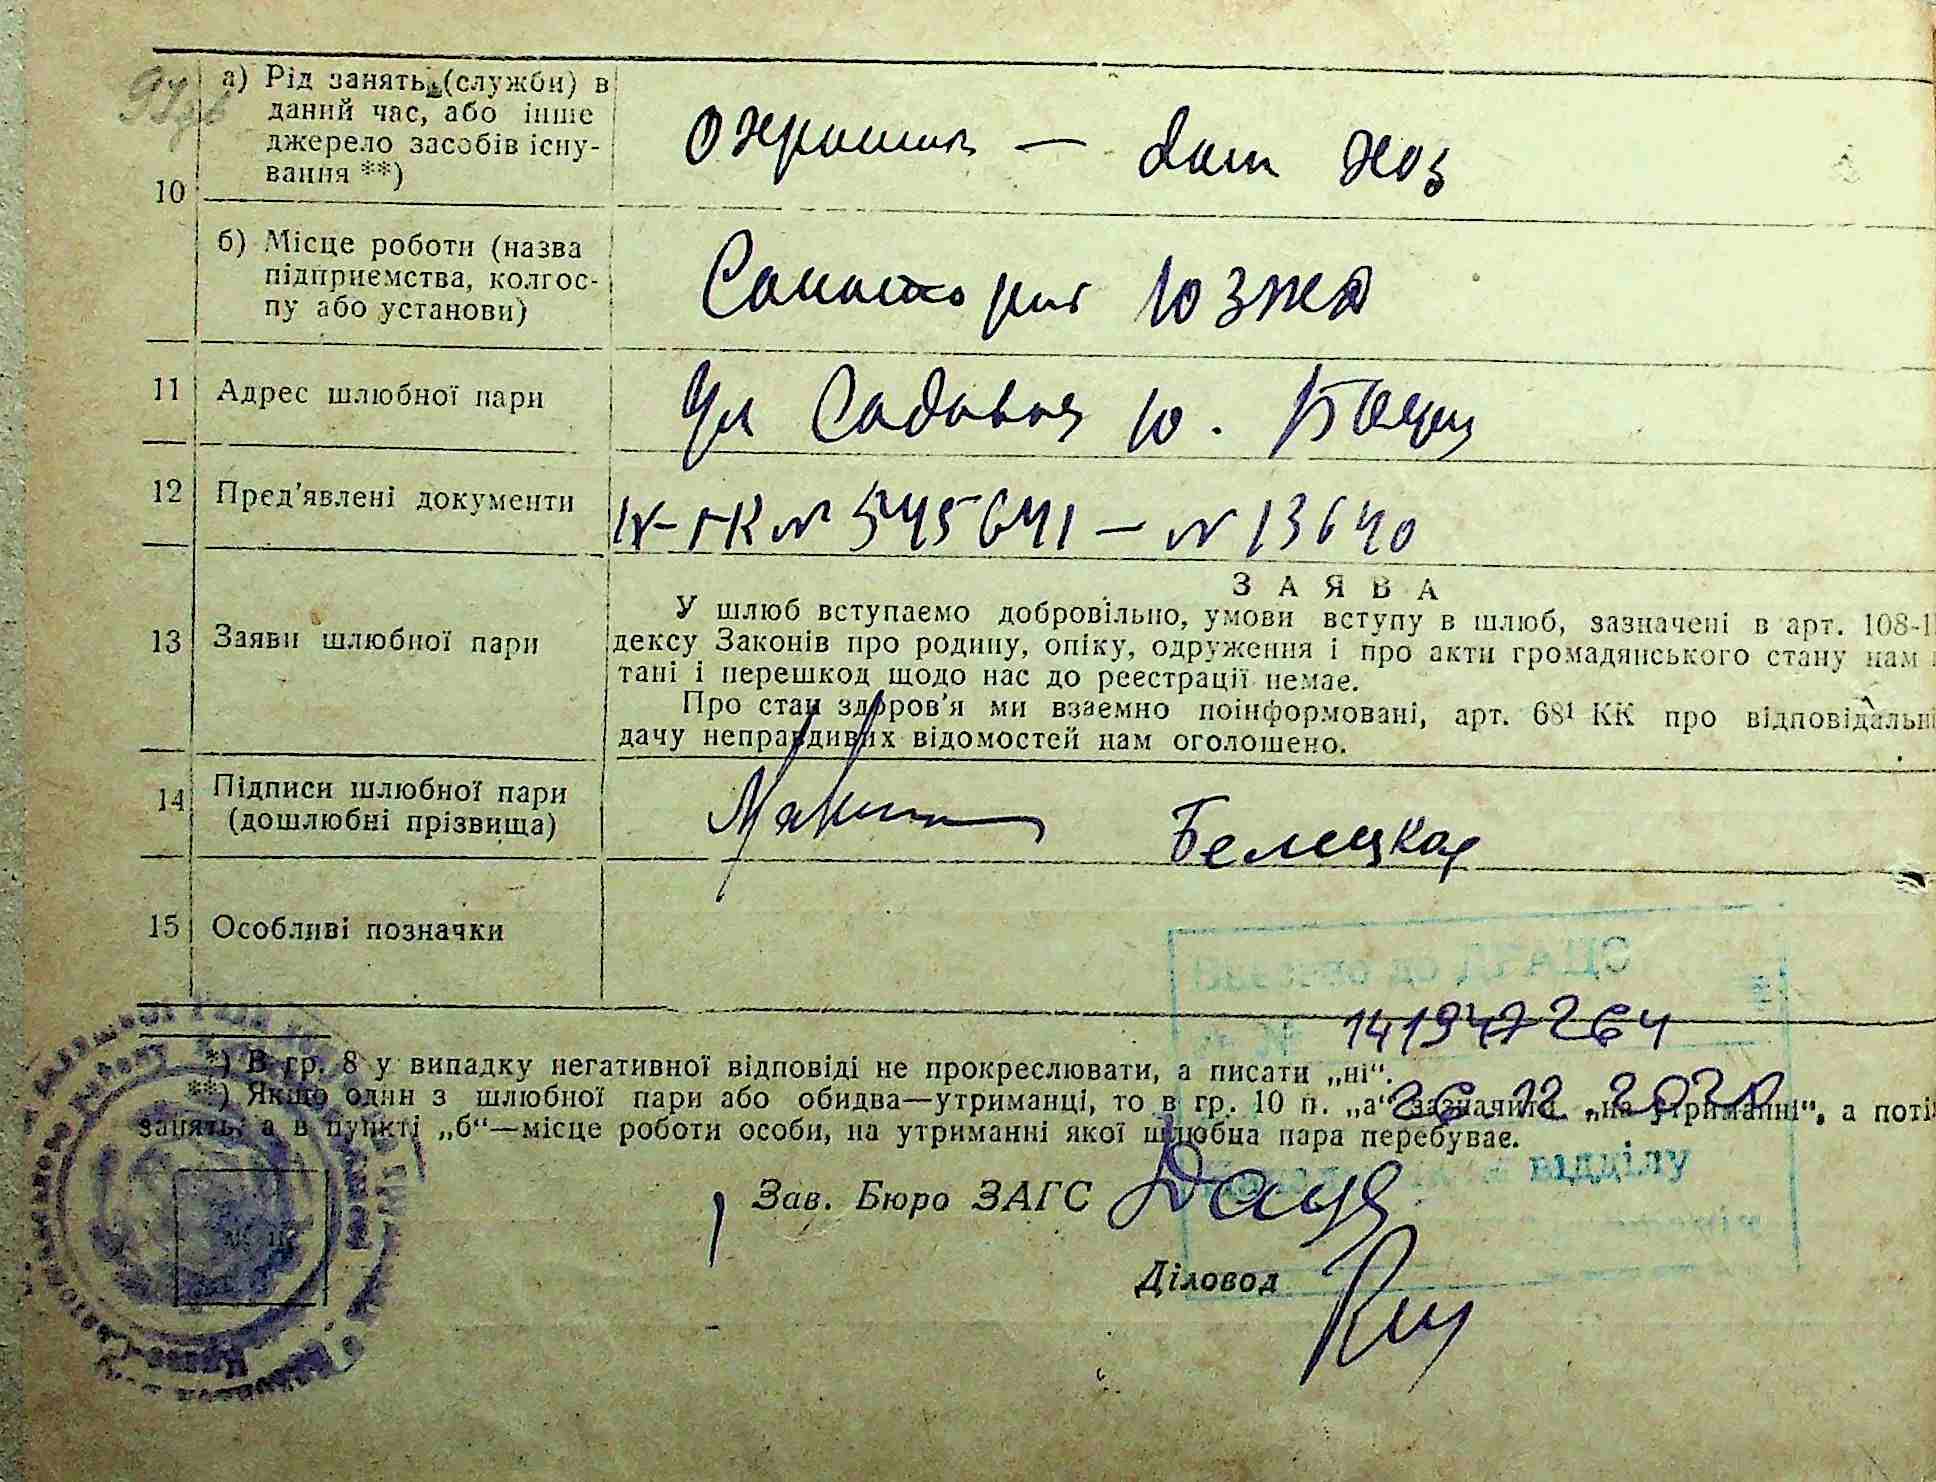 10
а) Рід занять (служби) в
даний час, або інше
джерело засобів існу-
вання **)
дом хоз
б) Місце роботи (назва
підприємства, колгос-
пу або установи)
Санатория ЮЗЖД
11 Адрес шлюбної пари
Ул Садовая 10.
12 Пред'явлені документи
№ 545641 — № 13640
13 Заяви шлюбної пари
ЗАЯВА
У шлюб вступаємо добровільно, умови вступу в шлюб, зазначені в арт. 108-1
дексу Законів про родину, опіку, одруження і про акти громадянського стану нам
тані і перешкод щодо нас до реєстрації немає.
Про стан здоров'я ми взаємно поінформовані, арт. 68¹ КК про відповідальн
дачу неправдивих відомостей нам оголошено.
14 Підписи шлюбної пари
(дошлюбні прізвища)
Белецкая
15 Особливі позначки
*) В гр. 8 у випадку негативної відповіді не прокреслювати, а писати „ні“.
**) Якщо один з шлюбної пари або обидва—утриманці, то в гр. 10 п. „а“ зазначити „на утриманні“, а поті
занять, а в пункті „б“—місце роботи особи, на утриманні якої шлюбна пара перебуває.
відділу
Зав. Бюро ЗАГС
Діловод